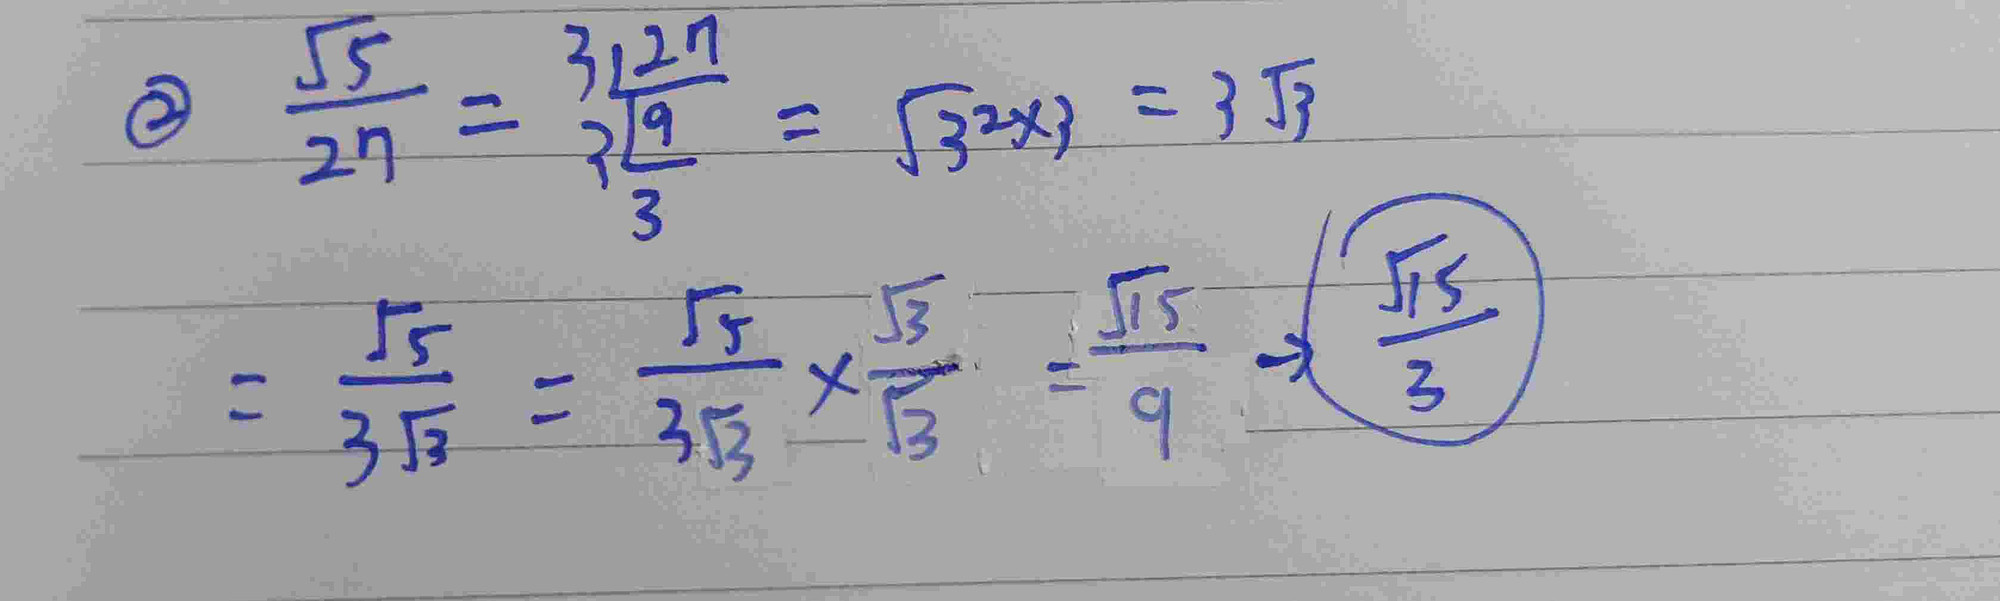 ② √5/27 = 3|27 3|9 3 = √3²×3 = 3√3
= √5/3√3 = √5/3√3 × √3/√3 = √15/9 → √15/3